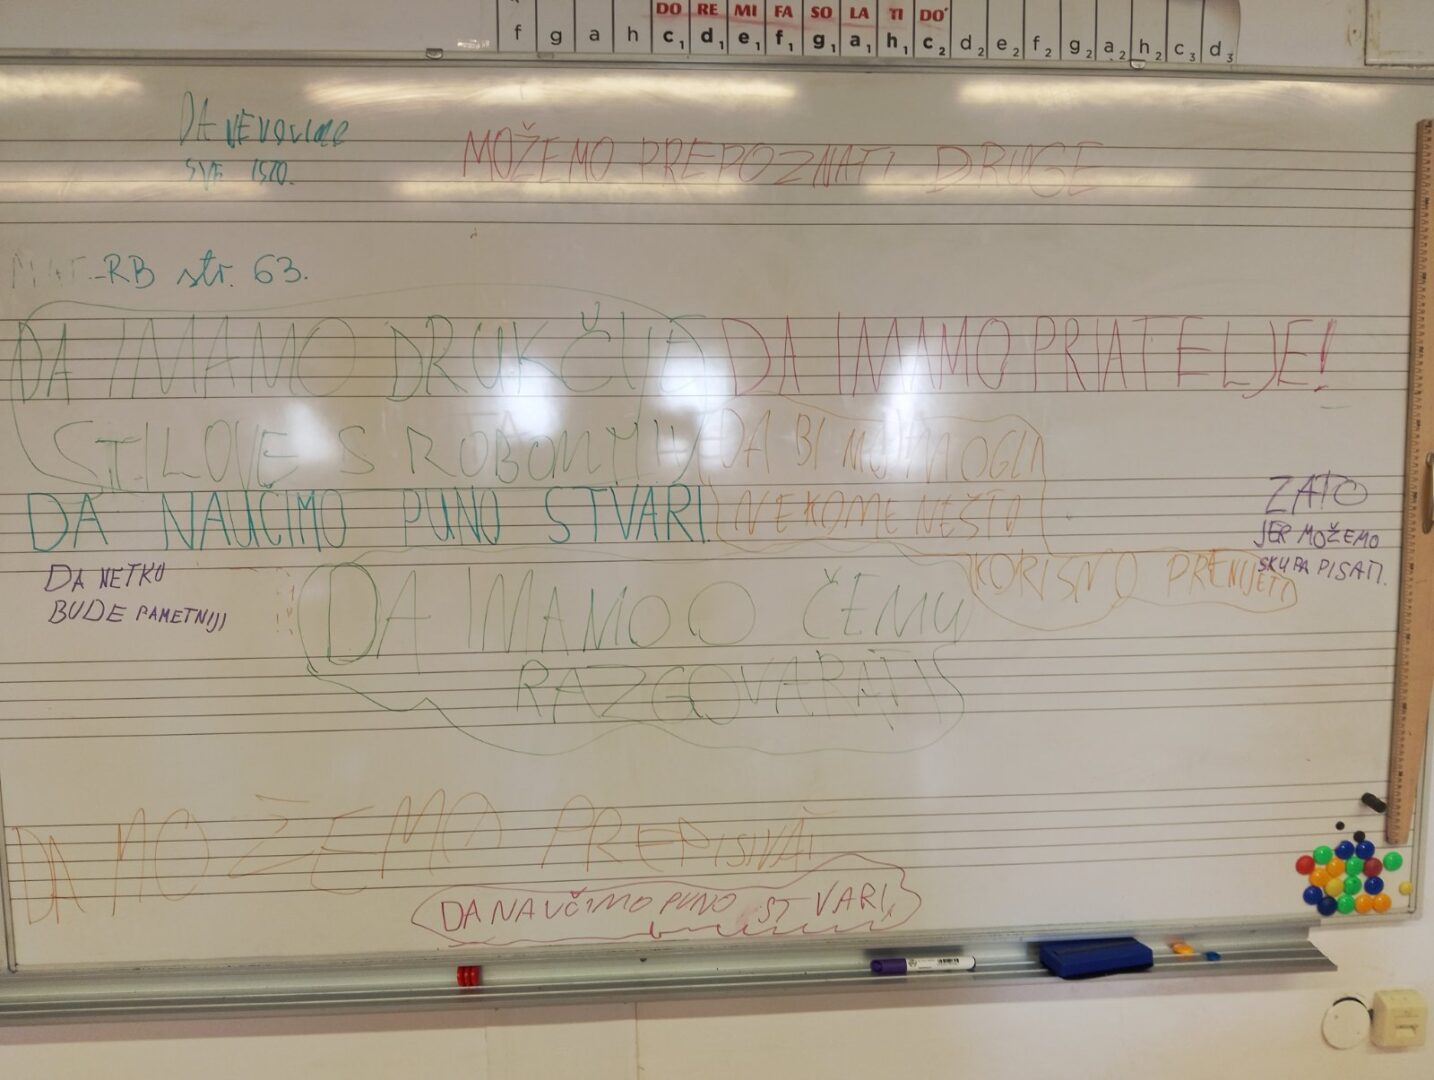 DO RE MI FA SO LA TI DO'
f g a h c1 d1 e1 f1 g1 a1 h1 c2 d2 e2 f2 g2 a2 h2 c3 d3
DA
SVE ISTO.
MOŽEMO PREPOZNATI DRUGE
-RB str. 63.
DA IMAMO DRUKČIJE
STILOVE S
DA IMAMO PRIATELJE!
DA BI MOGLI
NEKOME NEŠTO
KORISNO PRENIJETI
DA NAUČIMO PUNO STVARI.
ZATO
JER MOŽEMO
SKUPA PISATI.
DA NETKO
BUDE PAMETNIJI
DA IMAMO O ČEMU
RAZGOVARATI
DA MOŽEMO PREPISIVAT
DA NAUČIMO PUNO STVARI,